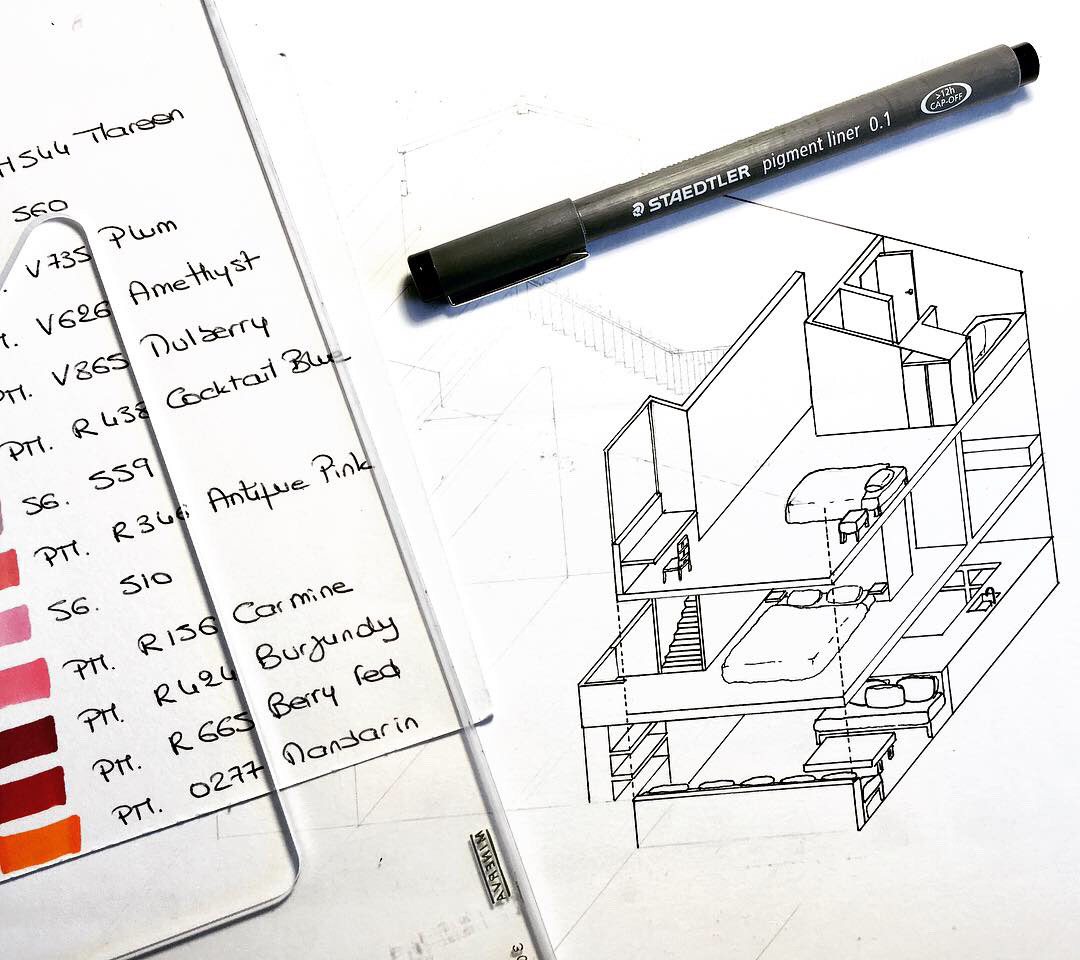 M544 Mareen
S60
V735 Plum
PM. V626 Amethyst
PM. V865 Mulberry
PM. R438 Cocktail Blue
SG. 559
PM. R346 Antique Pink
SG. 510
PM. R156 Carmine
PM. R424 Burgundy
PM. R665 Berry red
PM. 0277 Mandarin
STAEDTLER pigment liner 0.1
>12h
CAP-OFF
MINERVA